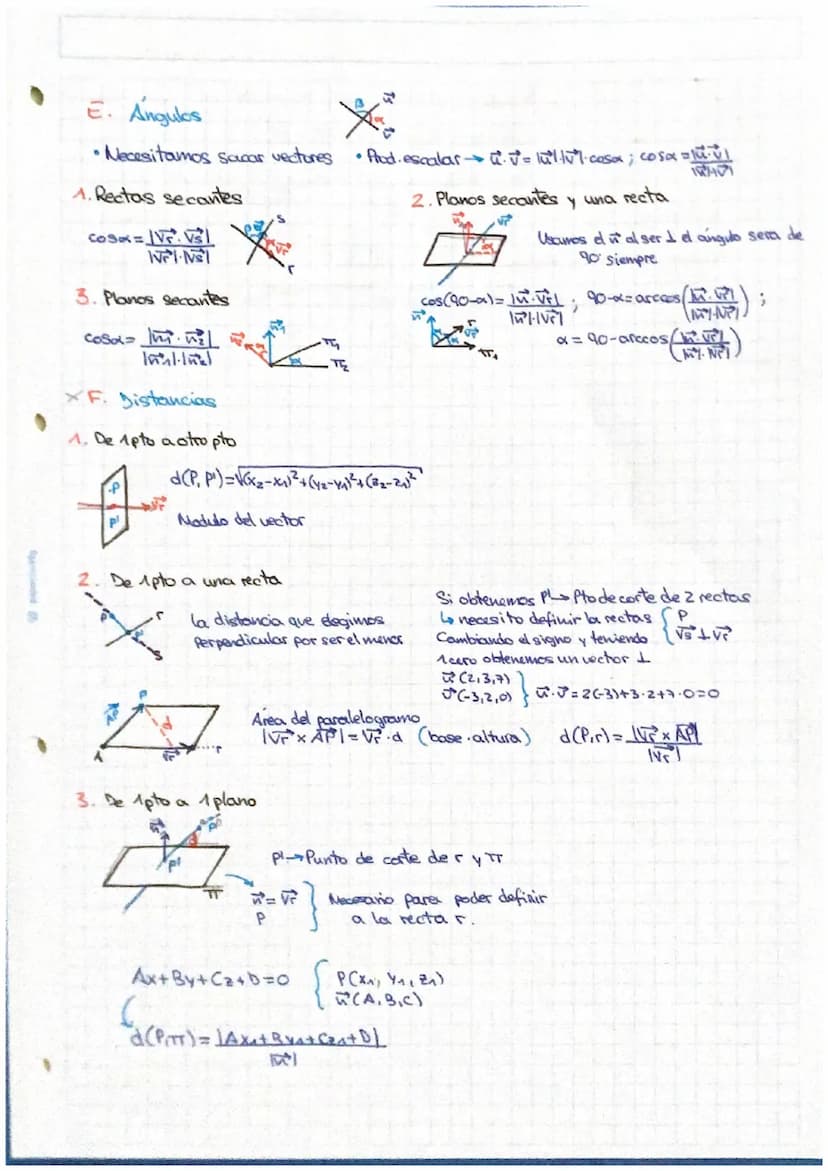 E. Ángulos
β u⃗
α
v⃗
• Necesitamos sacar vectores • Prod. escalar → u⃗·v⃗ = |u⃗|·|v⃗|·cosα ; cosα = |u⃗·v⃗| / |u⃗|·|v⃗|
1. Rectas secantes
cosα = |Vr⃗ · Vs⃗| / |Vr⃗|·|Vs⃗|
β s
α Vr⃗
r
2. Planos secantes y una recta
n⃗ Vr⃗
α
Usamos el n⃗ al ser ⊥ el ángulo sera de
90° siempre
cos(90-α) = |n⃗·Vr⃗| / |n⃗|·|Vr⃗| ; 90-α = arccos(|n⃗·Vr⃗| / |n⃗|·|Vr⃗|) ;
α = 90-arccos(|n⃗·Vr⃗| / |n⃗|·|Vr⃗|)
n⃗ r
Vr⃗
α π1
3. Planos secantes
cosα = |n1⃗ · n2⃗| / |n1⃗|·|n2⃗|
n2⃗ n1⃗
α π1
π2
F. Distancias
1. De 1pto a otro pto
d(P, P') = √(x2-x1)²+(y2-y1)²+(z2-z1)²
·P
Vr⃗
P'
Modulo del vector
2. De 1pto a una recta
P r
P'
s
la distancia que elegimos
perpendicular por ser el menor
Si obtenemos P' → Pto de corte de 2 rectas
↳ necesito definir la rectas { P
Vs⃗ ⊥ Vr⃗
Cambiando el signo y teniendo
1 cero obtenemos un vector ⊥
u⃗ (2,3,7)
v⃗ (-3,2,0) } u⃗·v⃗ = 2(-3)+3·2+7·0=0
P
AP⃗ d
A Vr⃗ r
Área del paralelogramo
|Vr⃗ × AP⃗| = Vr⃗·d (base·altura) d(P,r) = |Vr⃗ × AP⃗| / |Vr⃗|
3. De 1pto a 1 plano
n⃗ P
d
P'
π
P' → Punto de corte de r y π
n⃗ = Vr⃗
P } Necesario para poder definir
a la recta r.
Ax+By+Cz+D=0 { P(x1, y1, z1)
n⃗(A,B,C)
d(P,π) = |Ax1+By1+Cz1+D| / |n⃗|